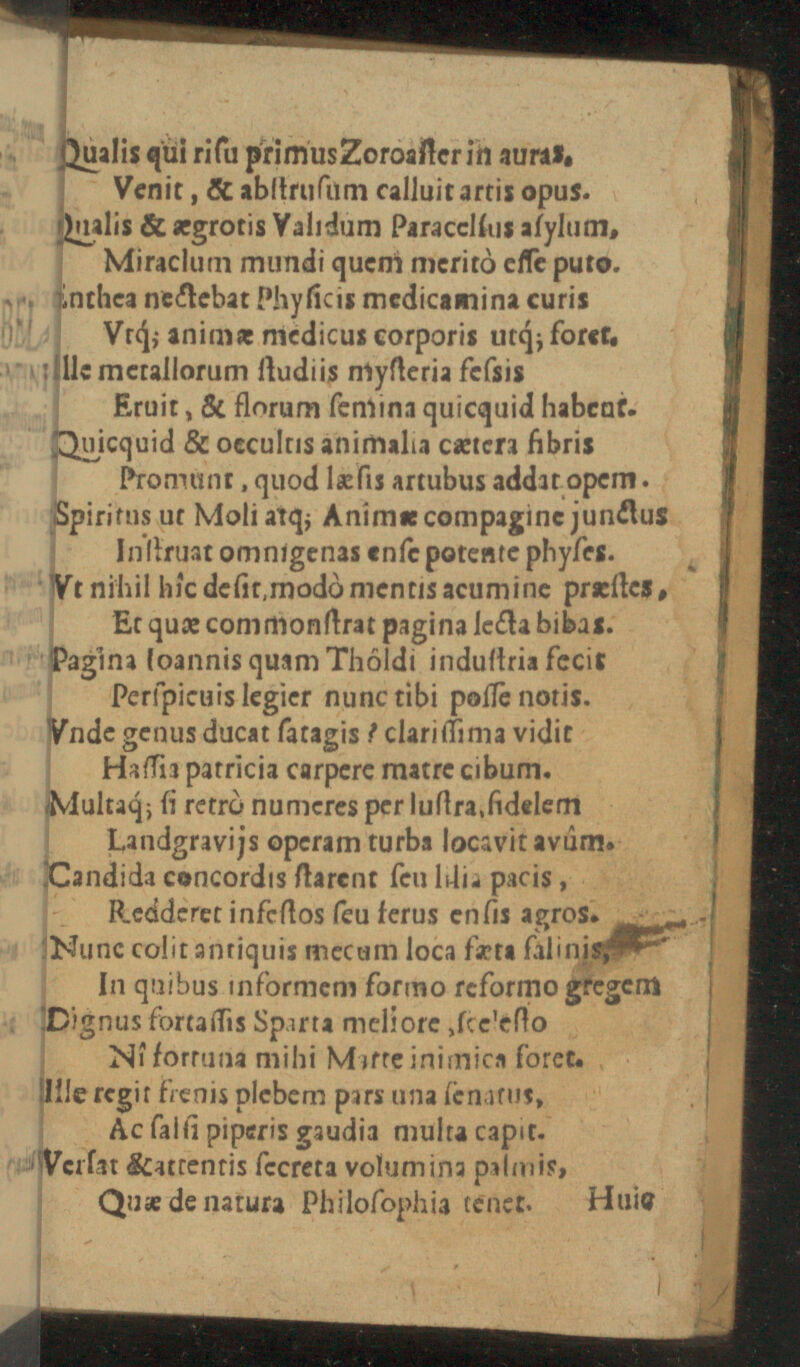 Qualis qui riſu primus Zoroaſter in auras,
Venit, & abſtruſum calluit artis opus.
Qualis & ægrotis Validum Paracelſus aſylum,
Miraclum mundi quem meritò eſſe puto.
Enthea nectebat Phyſicis medicamina curis
Vtq́; animæ medicus corporis utq́; foret.
Ille metallorum ſtudiis myſteria feſsis
Eruit, & florum ſemina quicquid habent.
Quicquid & occultis animalia cætera fibris
Promunt, quod læſis artubus addat opem.
Spiritus ut Moli atq; Animæ compagine junctus
Inſtruat omnigenas enſe potente phyſes.
Vt nihil hîc deſit, modò mentis acumine præſtes,
Et quæ commonſtrat pagina lecta bibas.
Pagina Ioannis quam Thôldi induſtria fecit
Perſpicuis legier nunc tibi poſſe notis.
Vnde genus ducat ſatagis? clariſſima vidit
Haſſia patricia carpere matre cibum.
Multaq́; ſi retrò numeres per luſtra, fidelem
Landgravijs operam turba locavit avûm.
Candida concordis ſtarent ſeu lilia pacis,
Redderet infeſtos ſeu ferus enſis agros.
Nunc colit antiquis mecum loca fæta ſalinis,
In quibus informem formo reformo gregem
Dignus fortaſſis Sparta meliore, ſee'eſto
Nî fortuna mihi Marte inimica foret.
Ille regit frenis plebem pars una ſenatus,
Ac ſalſi piperis gaudia multa capit.
Verſat & attentis ſecreta volumina palmis,
Quæ de natura Philoſophia tenet.
Huic